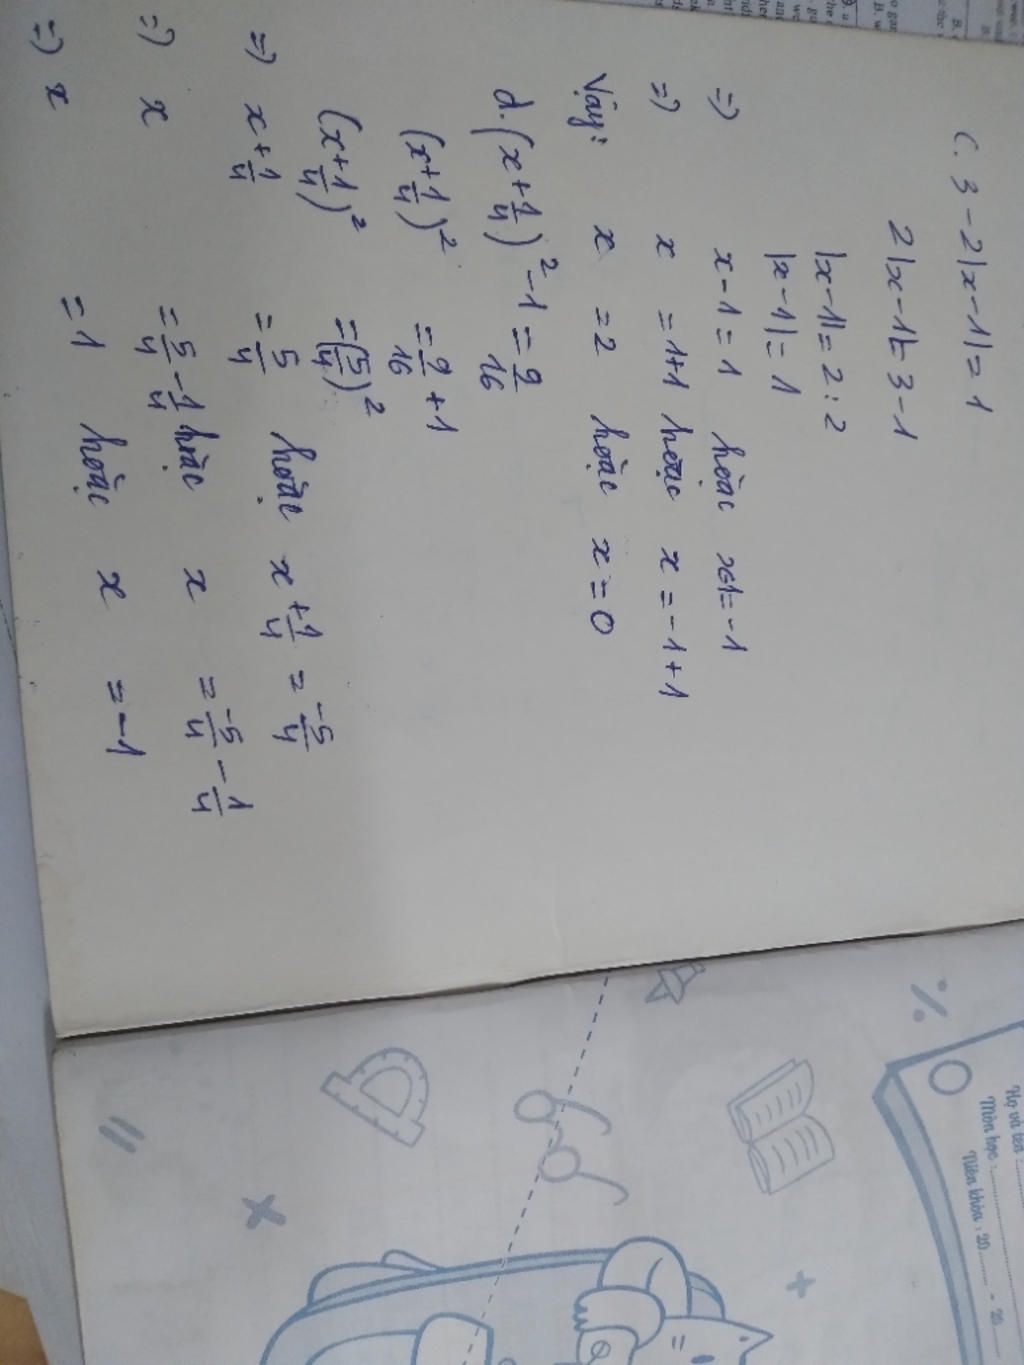 C. 3 - 2|x-1| = 1
2|x-1| = 3-1
|x-1| = 2:2
|x-1| = 1
=> x-1 = 1 hoặc x-1 = -1
=> x = 1+1 hoặc x = -1+1
Vậy: x = 2 hoặc x = 0
d. (x+1/4)² -1 = 9/16
(x+1/4)² = 9/16 + 1
(x+1/4)² = (5/4)²
=> x+1/4 = 5/4 hoặc x+1/4 = -5/4
=> x = 5/4 - 1/4 hoặc x = -5/4 - 1/4
=> x = 1 hoặc x = -1
Họ và tên:
Môn học:
Niên khóa: 20 - 20